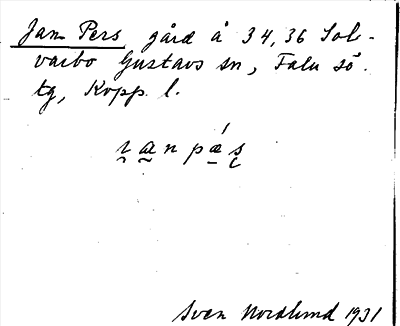 Jan Pers gård å 34,36 Sol-
varbo Gustavs sn, Falu sö.
tg, Kopp. l.
Sven Nordlund 1931